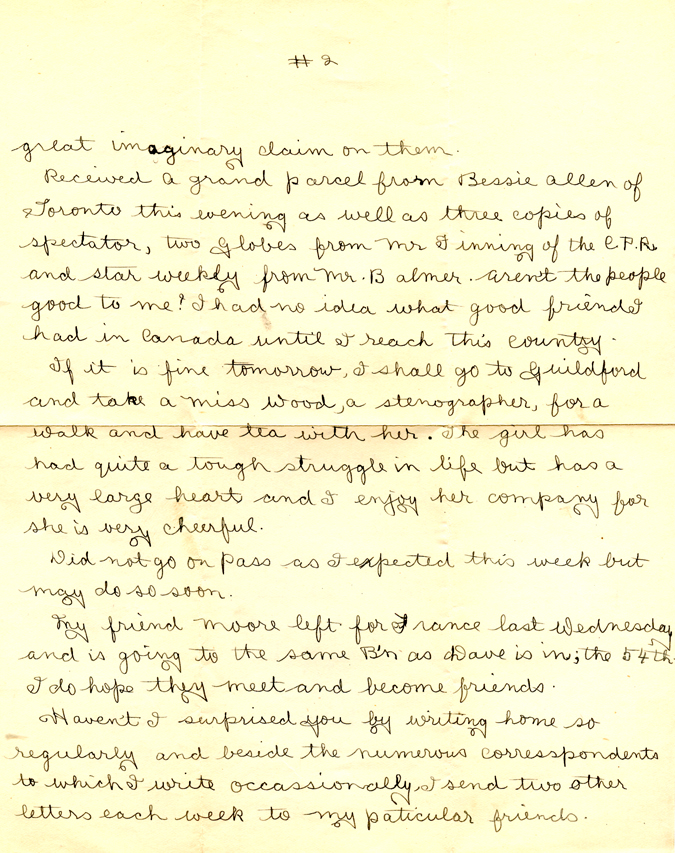 # 2
great imaginary claim on them.
Received a grand parcel from Bessie Allen of
Toronto this evening as well as three copies of
spectator, two Globes from Mr Finning of the C.P.R.
and star weekly from Mr. Balmer. Aren't the people
good to me? I had no idea what good friends I
had in Canada until I reach this country.
If it is fine tomorrow, I shall go to Guildford
and take a Miss Wood, a stenographer, for a
walk and have tea with her. The girl has
had quite a tough struggle in life but has a
very large heart and I enjoy her company for
she is very cheerful.
Did not go on Pass as I expected this week but
may do so soon.
My friend Moore left for France last Wednesday
and is going to the same B'n as Dave is in; the 54th.
I do hope they meet and become friends.
Haven't I surprised you by writing home so
regularly and beside the numerous corresspondents
to which I write occassionally, I send two other
letters each week to my paticular friends.